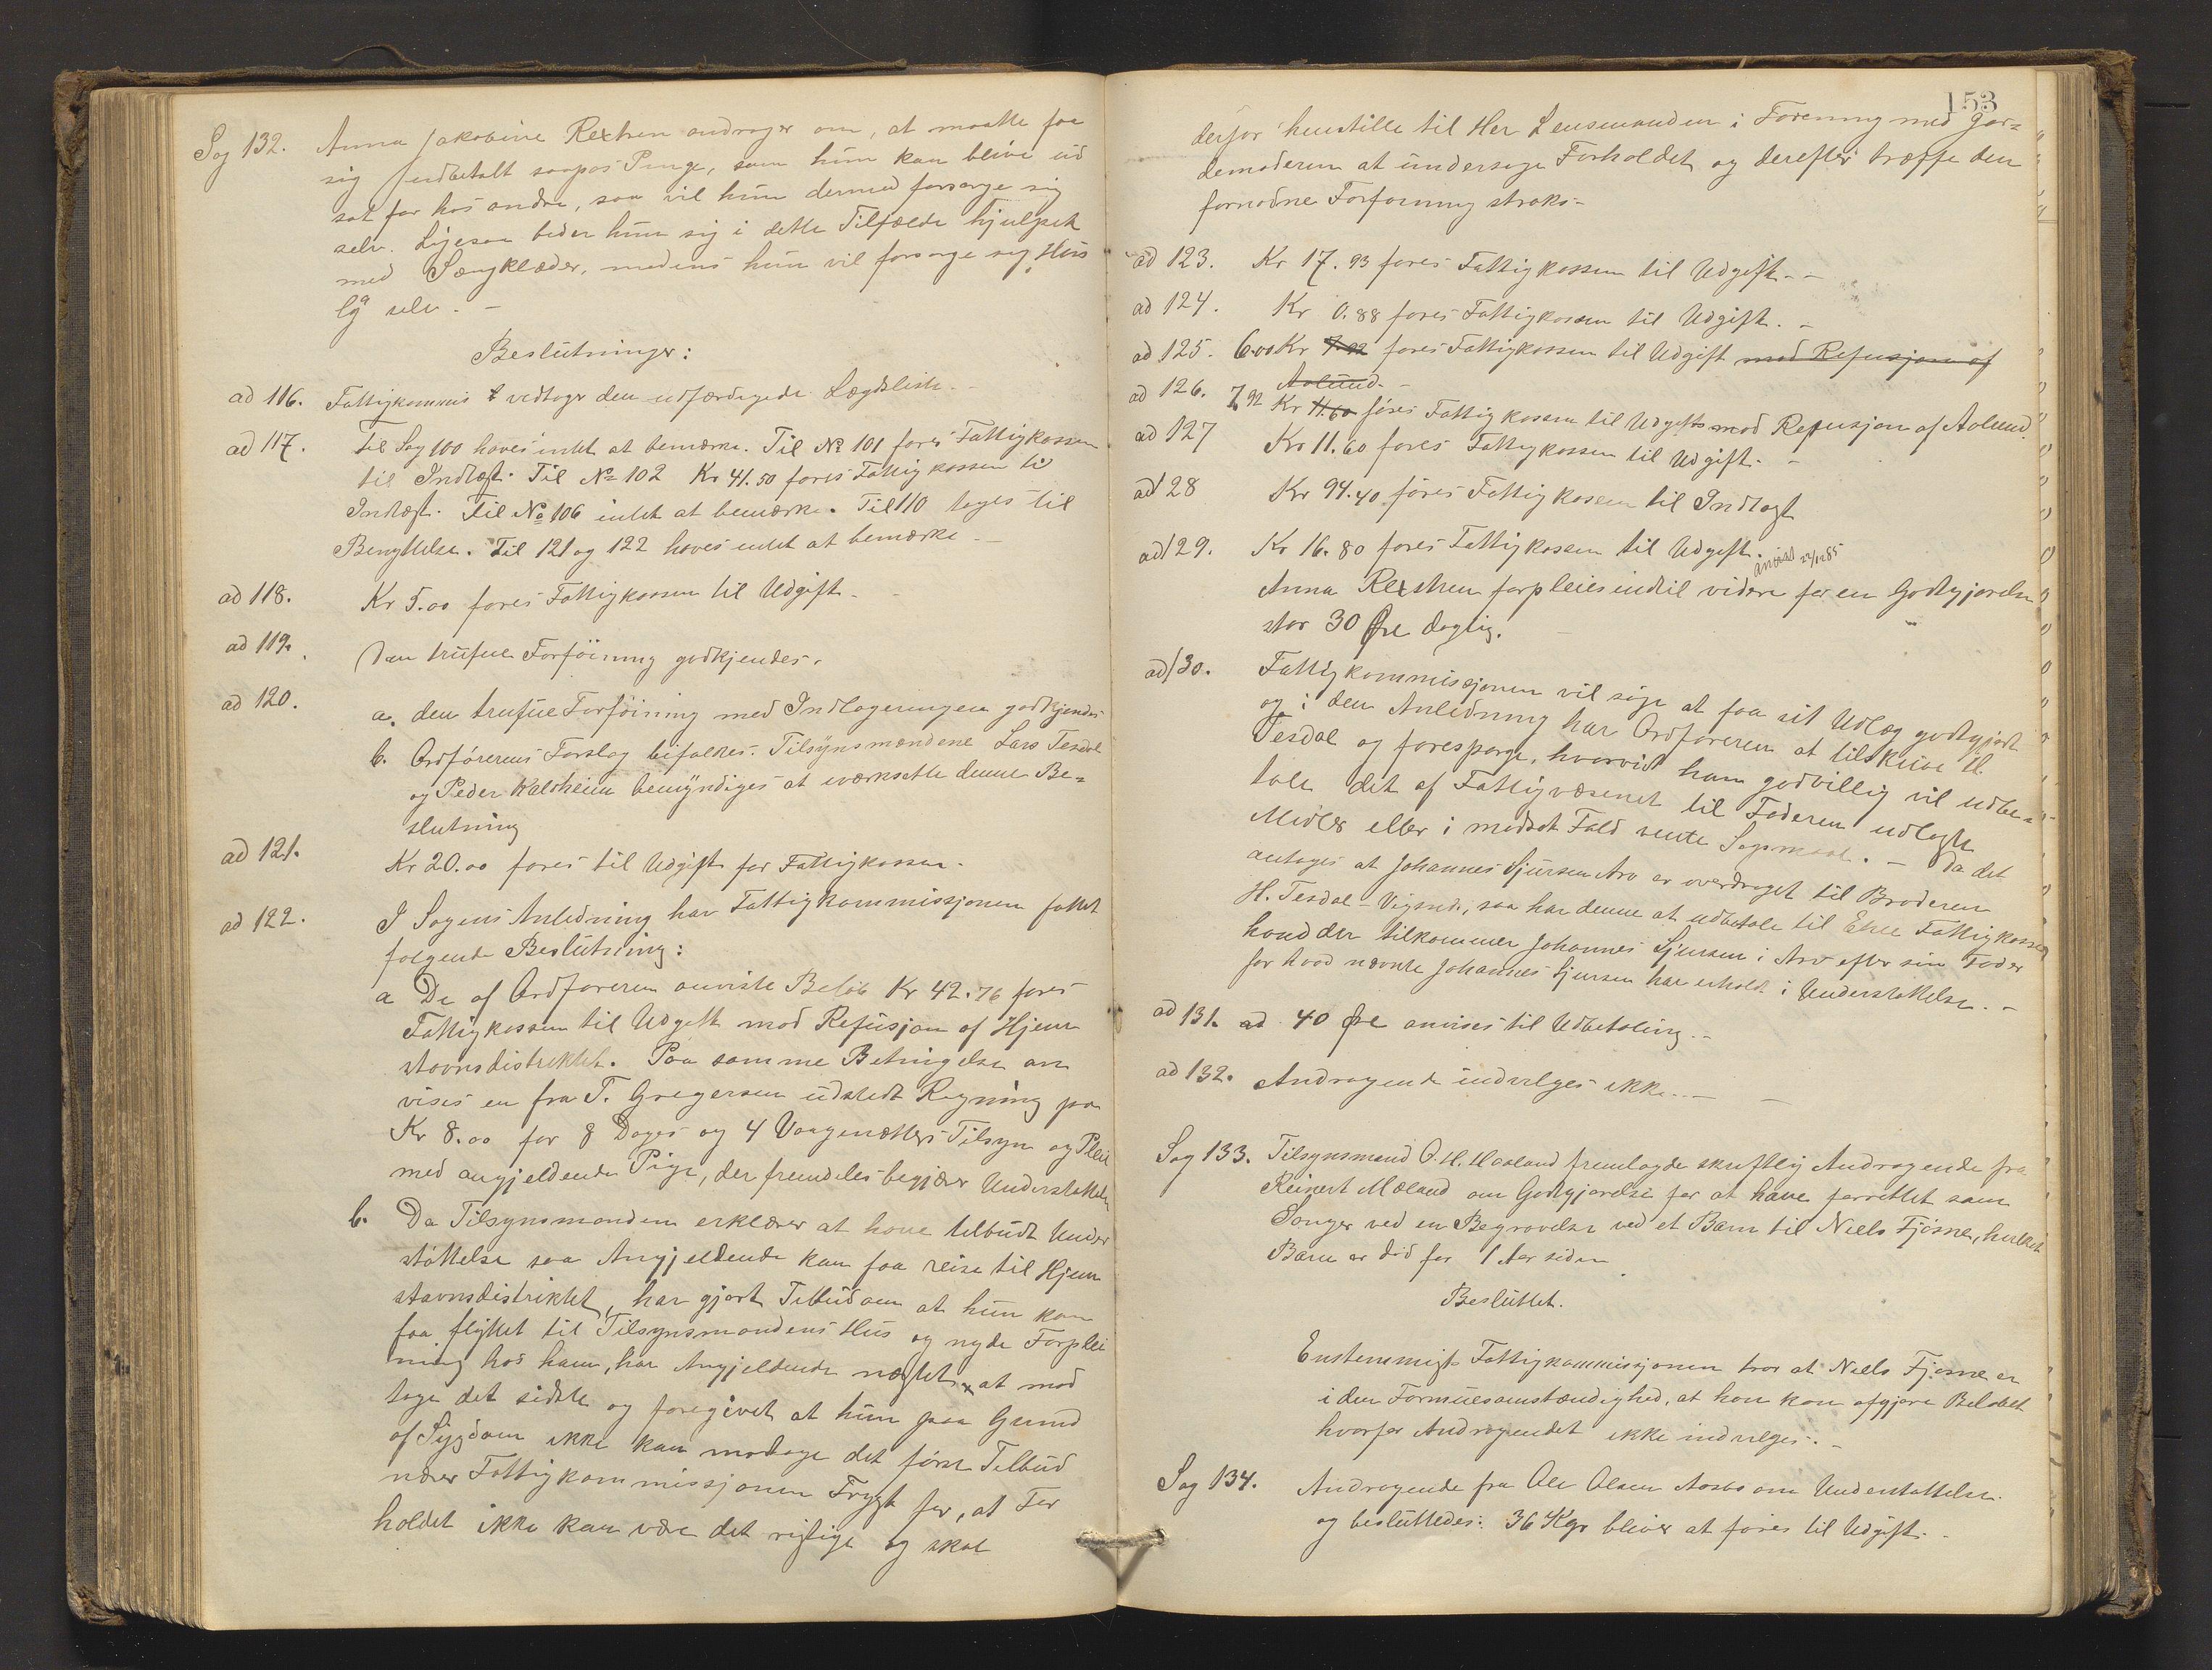 Sag 132. Anna Jakobine Rextren andrager om, at maatte faa
sig udbetalt saapas Penge, som hun kan blive ud
sat for hos andre, saa vil hun dermed forsørge sig
selv. Ligesaa beder hun sig i dette Tilfælde hjulpet
med Sengklæder, medens hun vil forsørge sig Hus
selv. -
Beslutninger:
ad 116. Fattigkommis vedtager den udfærdigede Lægdsliste. -
ad 117. Til Sag 100 haves intet at bemærke. Til No 101 føres Fattigkassen
til Indtægt. Til No 102 Kr 41.50 føres Fattigkassen til
Indtægt. Til No 106 intet at bemærke. Til 110 tages til
Benyttelse. Til 121 og 122 haves intet at bemærke -
ad 118. Kr 5.00 føres Fattigkassen til Udgift -
ad 119. Den trufne Forföining godkjendes.
ad 120. a. den trufne Forföining med Indlageringen godkjendes
b. Ordförerens Forslag bifaldtes. Tilsynsmændene Lars Tesdal
og Peder Kalsheim bemyndiges at iværksætte denne Be=
slutning
ad 121. Kr 20.00 føres til Udgift for Fattigkassen.
ad 122. I Sagens Anledning har Fattigkommissjonen fattet
følgende Beslutning:
a De af Ordføreren anviste Beløb Kr 42.76 føres
Fattigkassen til Udgift mod Refusjon af Hjem
stavnsdistriktet. Paa samme Betingelse an
vises en fra T. Gregersen udstedt Regning paa
Kr 8.00 for 8 Dages og 4 Vaagenætters Tilsyn og Pleie
med angjeldende Pige, der fremdeles begjærer Understøttelse
b. Da Tilsynsmanden erklærer at have tilbudt Under
støttelse saa Angjeldende kan faa reise til Hjem
stavnsdistriktet, har gjort Tilbud om at hun kan
faa flyttet til Tilsynsmandens Hus og nyde Forplei
ning hos ham, har Angjeldende nægtet at mod
tage det sidste og foregivet at hun paa Grund
af Sygdom ikke kan modtage det först Tilbud
nærer Fattigkommissjonen Frygt for, at For
holdet ikke kan være det rigtige og skal
153
derfor henstille til Her Lensmanden i Forening med Jor=
demoderen at undersøge Forholdet og derefter træffe den
fornødne Forføining straks -
ad 123. Kr 17.93 føres Fattigkassen til Udgift - -
ad 124. Kr 0.88 føres Fattigkassen til Udgift. -
ad 125. 6.00 Kr 7.92 føres Fattigkassen til Udgift mod Refusjon af
Aalund. -
ad 126. 7,92 Kr 11.60 föres Fattigkassen til Udgift mod Refusjon af Aalund.
ad 127 Kr 11.60 føres Fattigkassen til Udgift. -
ad 128 Kr 94.40 föres Fattigkassen til Indtægt
ad 129. Kr 16.80 føres Fattigkassen til Udgift. anvist 22/12 85
Anna Rextren forpleies indtil videre for en Godtgjørelse
stor 30 Øre daglig. -
ad 130. Fattigkommissjonen vil söge at faa sit Udlæg godtgjort
og i den Anledning har Ordføreren at tilskrive H.
Tesdal og forespørge, hvorvidt ham godvillig vil udbe=
tale det af Fattigvæsenet til Faderen udlagte
Midler eller i modsat Fald vente Sagsmaal. - Da det
antages at Johannes Sjursen Arv er overdraget til Broderen
H. Tesdal - Vigsnds, saa har denne at udbetale til Etne Fattigkasse
hvad der tilkommer Johannes Sjursen i Arv efter sin Fader
for hvad nævnte Johannes Sjursen har erholdt i Understøttelse. -
ad 131. ad 40 Øre anvises til Udbetaling. -
ad 132. Andragende indvilges ikke. -
Sag 133. Tilsynsmand O. H. Haaland fremlagde skriftlig Andragende fra
Reinert Mæland om Godtgjørelse for at have forrettet som
Sanger ved en Begravelse ved et Barn til Niels Fjösne, hvilket
Barn er död for 1 Aar siden
Besluttet.
Enstemmigt Fattigkommissjonen tror at Niels Fjøsne er
i den Formuesomstændighed, at han kan afgjøre Beløbet
hvorfor Andragendet ikke indvilges. -
Sag 134. Andragende fra Ole Olsen Aosbø om Understøttelse
og besluttedes: 36 Kgr bliver at föres til Udgift. -